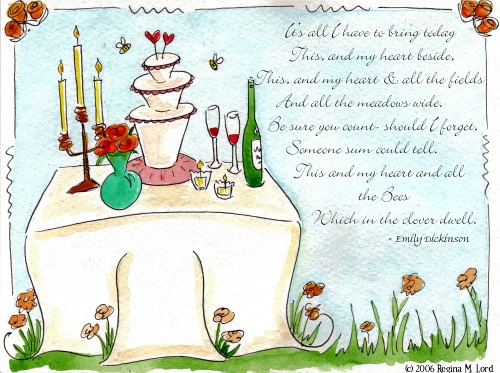 It's all I have to bring today
This, and my heart beside,
This, and my heart & all the fields
And all the meadows wide.
Be sure you count- should I forget,
Someone sum could tell.
This and my heart and all
the Bees
Which in the clover dwell.
- Emily Dickinson
(c) 2006 Regina M. Lord